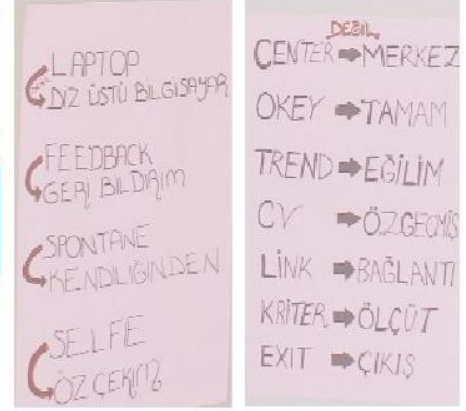 LAPTOP
DİZ ÜSTÜ BİLGİSAYAR
FEEDBACK
GERİ BİLDİRİM
SPONTANE
KENDİLİĞİNDEN
SELFIE
ÖZ ÇEKİM
DEĞİL
CENTER ➡ MERKEZ
OKEY ➡ TAMAM
TREND ➡ EĞİLİM
CV ➡ ÖZGEÇMİŞ
LİNK ➡ BAĞLANTI
KRİTER ➡ ÖLÇÜT
EXIT ➡ ÇIKIŞ